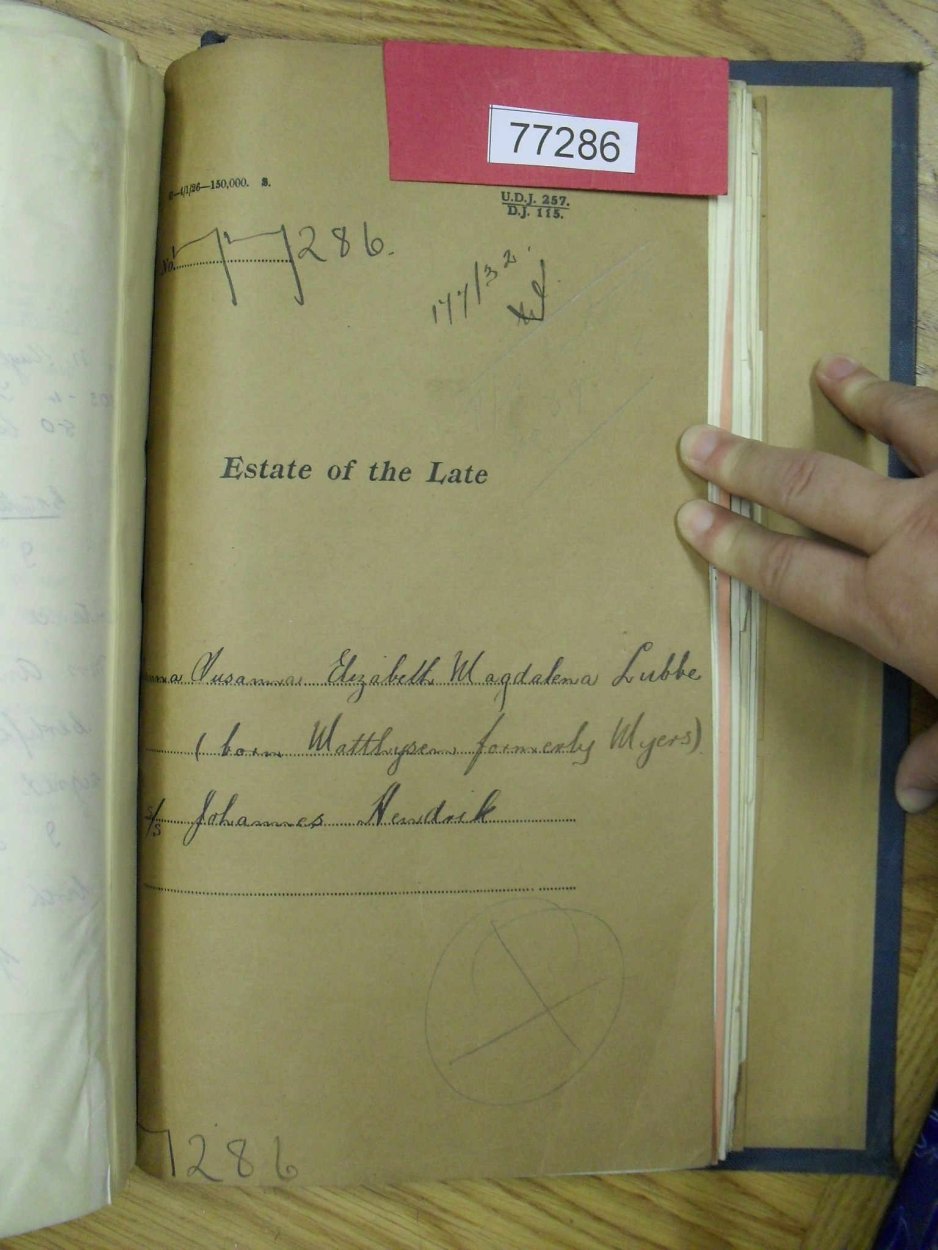 77286
—4/1/26—150,000. S.
U.D.J. 257.
D.J. 115.
No. 77286.
177/32
Estate of the Late
Susanna Elizabeth Magdalena Lubbe
(born Matthysen formerly Myers)
s/s Johannes Hendrik
7286